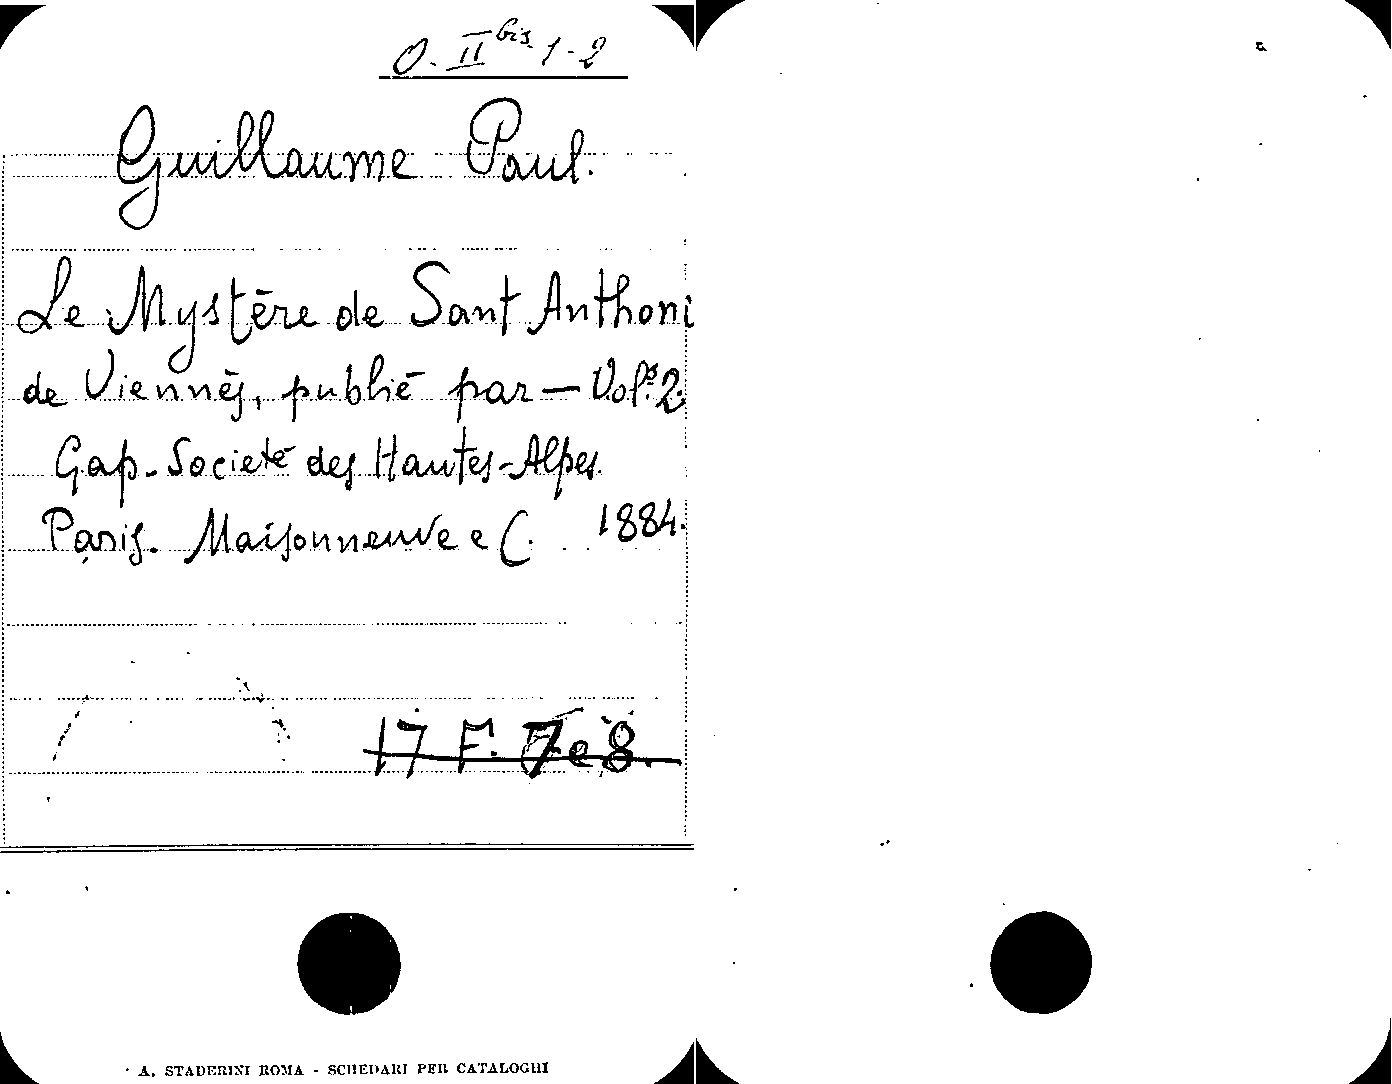 O. II bis 1-2
Guillaume Paul.
Le Mystère de Sant Anthoni
de Viennès, publié par — Vol.s 2.
Gap. Societé des Hautes-Alpes.
Paris. Maisonneuve e C. 1884.
17 F. 7 e 8.
A. STADERINI ROMA - SCHEDARI PER CATALOGHI